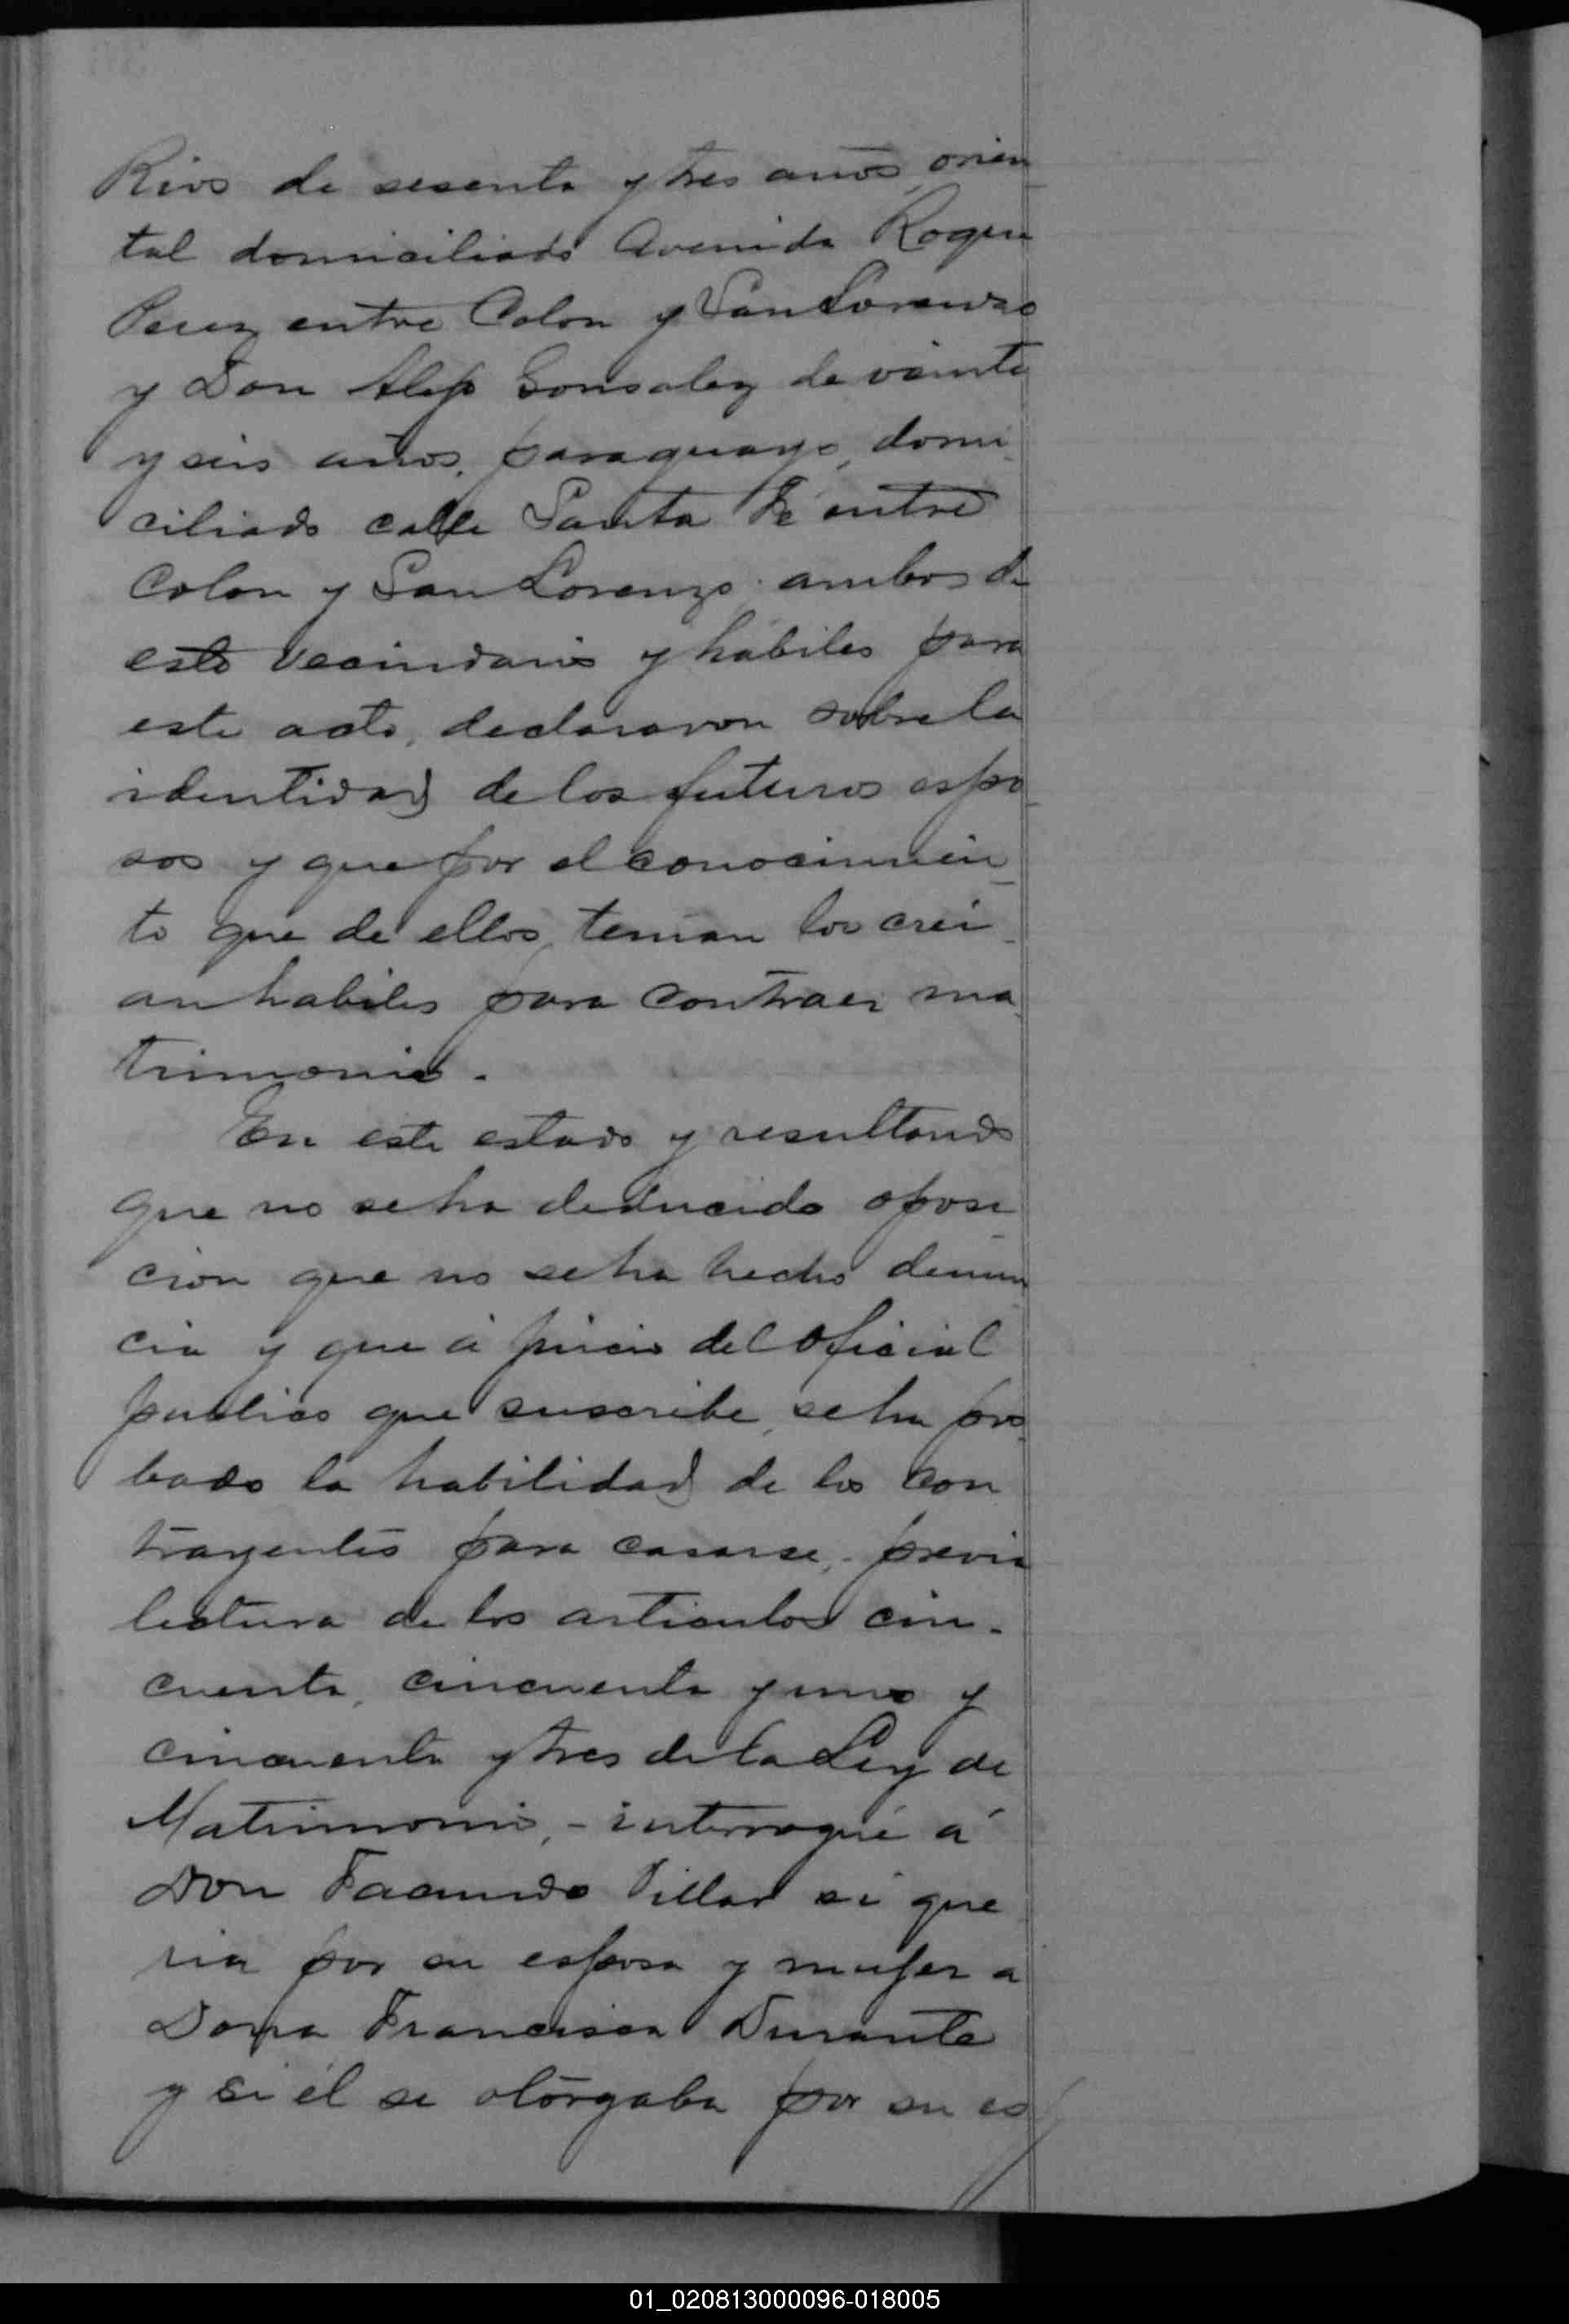 Rios de sesenta y tres años, orien
tal domiciliado Avenida Roque
Perez entre Colon y San Lorenzo
y Don Alejo Gonsalez de veinte
y seis años, paraguayo, domi
ciliado calle Santa Fé entre
Colon y San Lorenzo, ambos de
este vecindario y hábiles para
este acto, declararon sobre la
identidad de los futuros espo
sos y que por el conocimien
to que de ellos tenian los crei
an habiles para contraer ma
trimonio.
En este estado y resultando
que no se ha deducido oposi
cion que no se ha hecho denun
cia y que á juicio del Oficial
publico que suscribe, se ha pro
bado la habilidad de los con
trayentes para casarse, - previa
lectura de los articulos cin-
cuenta, cincuenta y uno y
cincuenta y tres de la Ley de
Matrimonio, - interrogué á
Don Facundo Villar si que
ria por su esposa y mujer a
Dona Francisca Durante
y si él se otorgaba por su es
01_020813000096-018005